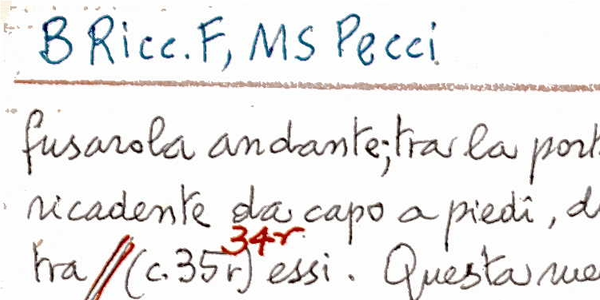 B Ricc. F, MS Pecci
fusarola andante; tra la port
ricadente da capo a piedi, d
34r
tra (c. 35r) essi. Questa